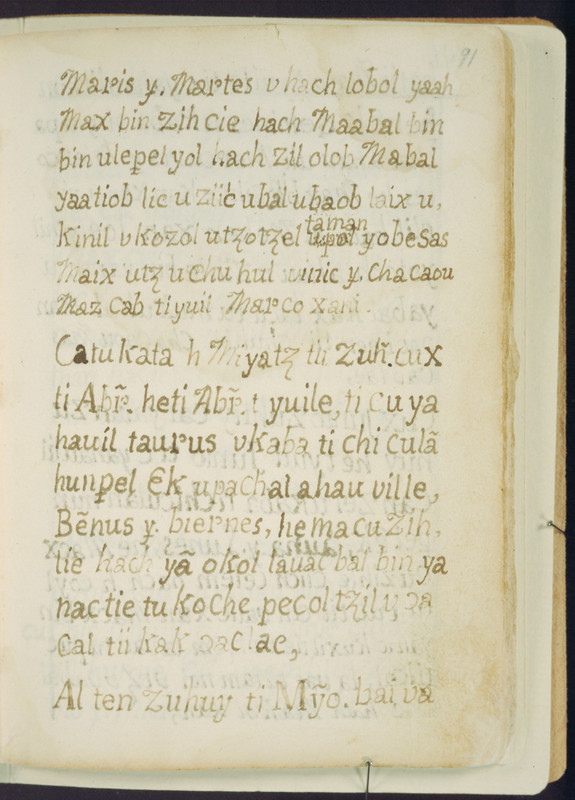 91
Maris y, Martes v hach lobol yaah
Max bin zihcie hach Maabal bin
bin ulepel yol hach zil olob Mabal
yaatiob lic u ziic ubal ubaob laix u,
taman
Kinil vkozol utꜩotꜩel yobesas
Maix utꜩ uchuhul vinic y. chacaou
Maz cab tiyuil Marco xani.
Catu kata h Miyatꜩ tii zuħ. cux
ti Abr̃. heti Abr̃. t yuile, ti cu ya
hauil taurus vkaba ti chi culã
hunpel Ek u pachal ahau ville,
Bẽnus y. biernes, he macu zih,
lie hach yã okol lauac bal bin ya
nac tie tu koche pecol tꜩil y ɔa
Cal tii kak ɔac lae,
Al ten zuhuy ti Mỹo. bai va